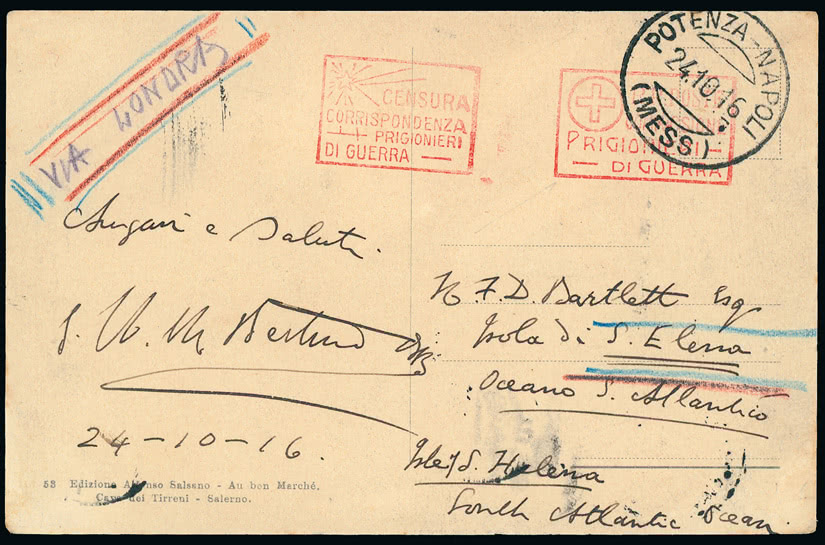 VIA LONDRA
CENSURA
CORRISPONDENZA
PRIGIONIERI
DI GUERRA
POTENZA-NAPOLI
24.10.16
(MESS)
PRIGIONIERI
DI GUERRA
Auguri e saluti.
24-10-16.
H. F. D. Bartlett Esq
Isola di S. Elena
Oceano S. Atlantico
Isle of S. Helena
South Atlantic Ocean
53 Edizione Alfonso Salsano - Au bon Marché.
Cava dei Tirreni - Salerno.